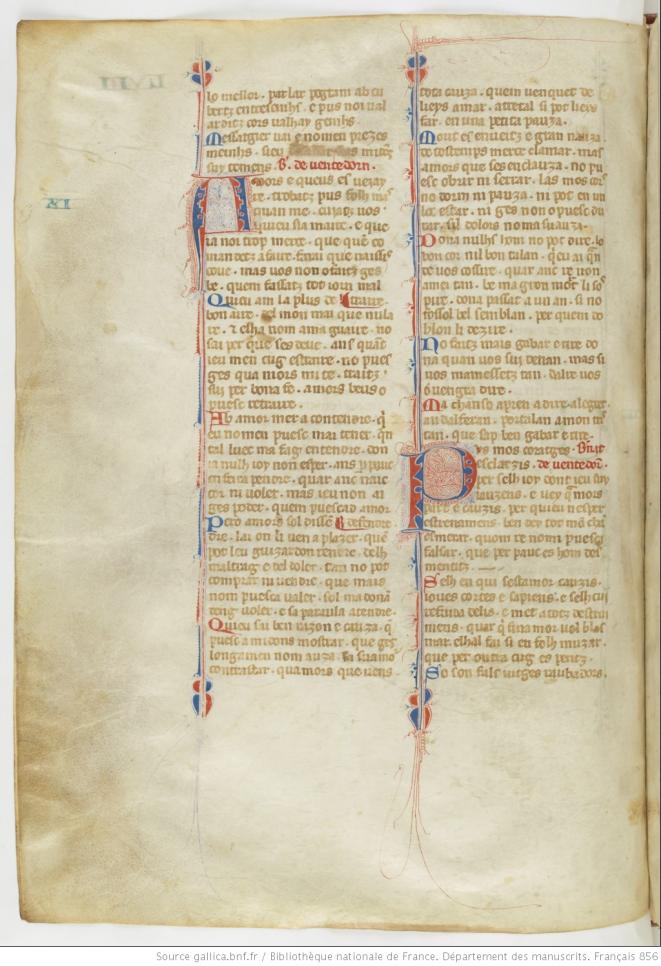 LVIII
lo mellor. parlar pogram ab cu
bertz entresenhs. e pus noi val
arditz cors valham genhs.
Messatgier vai e nomen prezes
meinhs. sieu
suy temens. B. de ventedorn.
LX
Amors e queus es veiay
re. trobatz pus folh mas
quan me. cuiatz vos
quieu sia maire. e que
ia noi trop merce. que que co
man detz a faire. farai que naissi
cove. mas vos non estaitz ges
be. quem fassatz tot iorn mal
Quieu am la plus de traire.
bon aire. del mon mai que nulla
re. z elha nom ama guaire. no
sai per que ses deve. ans quant
ieu men cug estraire. no pues
ges qua mors mi te. traitz
suy per bona fe. amors beus o
puesc retraire.
Ab amor mer a contendre. q
eu no men puesc mai tener. qn
tal luec ma fag entendre. don
ia nulh ioy non esper. ans per pauc
en fera pendre. quar anc naic
cor ni voler. mas ieu non ai
ges poder. quem puescad amor
Pero amors sol dissendre. defendre
dre. lai on li ven a plazer. quem
pot leu guizardon rendre. delh
maltrag e del doler. tan no pot
comprar ni vendre. que mais
nom puesca valer. sol ma dona
denh voler. e sa paraula atendre.
Quieu sai ben razon e cauza. q
puesc a midons mostrar. que ges
longamen nom auza.
contrastar. qua mors que vens
tota cauza. quem venquet de
lieys amar. atretal si pot lieys
far. en una petita pauza.
Mout es enveitz e gran nauza
de tostemps merce clamar. mas
amors que ses enclauza. no pu
esc obrir ni serrar. las mos cors
no dorm ni pauza. ni pot en un
loc estar. ni ges non o puesc du
rar. sil dolors no ma suauza.
Dona nulhs hom no pot dire. lo
bon cor nil bon talan. queu ai qn
de vos cossire. quar anc re non
amei tan. be ma gron mort li so
pire. dona passat a un an. si no
fossol bel semblan. per quem do
blon li dezire.
No faitz mais gabar e rire do
na quan vos suy denan. mas si
vos mamessetz tan. dalre vos
o vengra dire.
Ma chanso apren a dire. alegur.
an dalferan. portalan amon tris
tan. que sap ben gabar e rire.
Pus mos coratges. B. nart
esclarzis. de ventedorn.
per selh ioy dont ieu suy
iauzens. e vey q amors
part e cauzis. per quieu nesper
estrenamens. ben dey tot mo chan
esmerar. quom re nom puesca
falsar. que per pauc es hom des
mentitz.
Selh en qui sestamor cauzis.
ioves cortes e sapiens. e selh cui
refuda delis. e met a totz destrui
mens. quar q fina mor vol blas
mar. elhal fai si en folh muzar.
que per outra cug es peritz.
So son fals iutges raubadors.
Source gallica.bnf.fr / Bibliothèque nationale de France. Département des manuscrits. Français 856